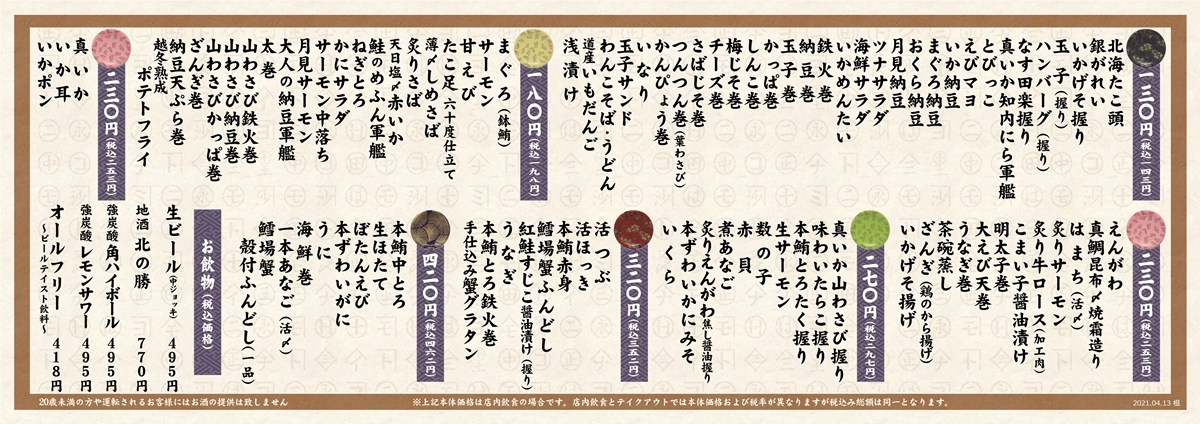 一三〇円（税込一四三円）
北海たこ頭
銀がれい
いかげそ握り
玉子（握り）
ハンバーグ（握り）
なす田楽握り
真いか知内にら軍艦
とびっこ
えびマヨ
いか納豆
まぐろ納豆
おくら納豆
月見納豆
ツナサラダ
海鮮サラダ
いかめんたい
鉄火巻
納豆巻
玉子巻
かっぱ巻
しんこ巻
梅じそ巻
チーズ巻
さばじそ巻
つんつん巻（葉わさび）
かんぴょう巻
いなり
玉子サンド
わんこそば・うどん
道産いもだんご
浅漬け
一八〇円（税込一九八円）
まぐろ（鉢鮪）
サーモン
甘えび
たこ足（六十度仕立て
薄〆しめさば
炙りさば
天日塩〆赤いか
鮭のめふん軍艦
ねぎとろ
かにサラダ
サーモン中落ち
月見サーモン
大人の納豆軍艦
太巻
山わさび鉄火巻
山わさび納豆巻
山わさびかっぱ巻
ざんぎ巻
納豆天ぷら巻
越冬熟成
ポテトフライ
二三〇円（税込二五三円）
真いか
いか耳
いかポン
二三〇円（税込二五三円）
えんがわ
真鯛昆布〆焼霜造り
はまち（活〆）
炙りサーモン
炙り牛ロース（加工肉）
こまい子醤油漬け
明太子巻
大えび天巻
うなぎ巻
茶碗蒸し
ざんぎ（鶏のから揚げ）
いかげそ揚げ
二七〇円（税込二九七円）
真いか山わさび握り
味わいたらこ握り
本鮪とろたく握り
生サーモン
数の子
赤貝
煮あなご
炙りえんがわ焦し醤油握り
本ずわいかにみそ
いくら
三二〇円（税込三五二円）
活つぶ
活ほっき
本鮪赤身
鱈場蟹ふんどし
紅鮭すじこ醤油漬け（握り）
うなぎ
本鮪とろ鉄火巻
手仕込み蟹グラタン
四二〇円（税込四六二円）
本鮪中とろ
生ほたて
ぼたんえび
本ずわいがに
うに
海鮮巻
一本あなご（活〆）
殻付ふんどし（一品）
鱈場蟹
お飲物（税込価格）
生ビール（中ジョッキ） 495円
地酒 北の勝 770円
強炭酸 角ハイボール 495円
強炭酸 レモンサワー 495円
オールフリー 418円
〜ビールテイスト飲料〜
20歳未満の方や運転されるお客様にはお酒の提供は致しません
※上記本体価格は店内飲食の場合です。店内飲食とテイクアウトでは本体価格および税率が異なりますが税込み総額は同一となります。
2021.04.13 根